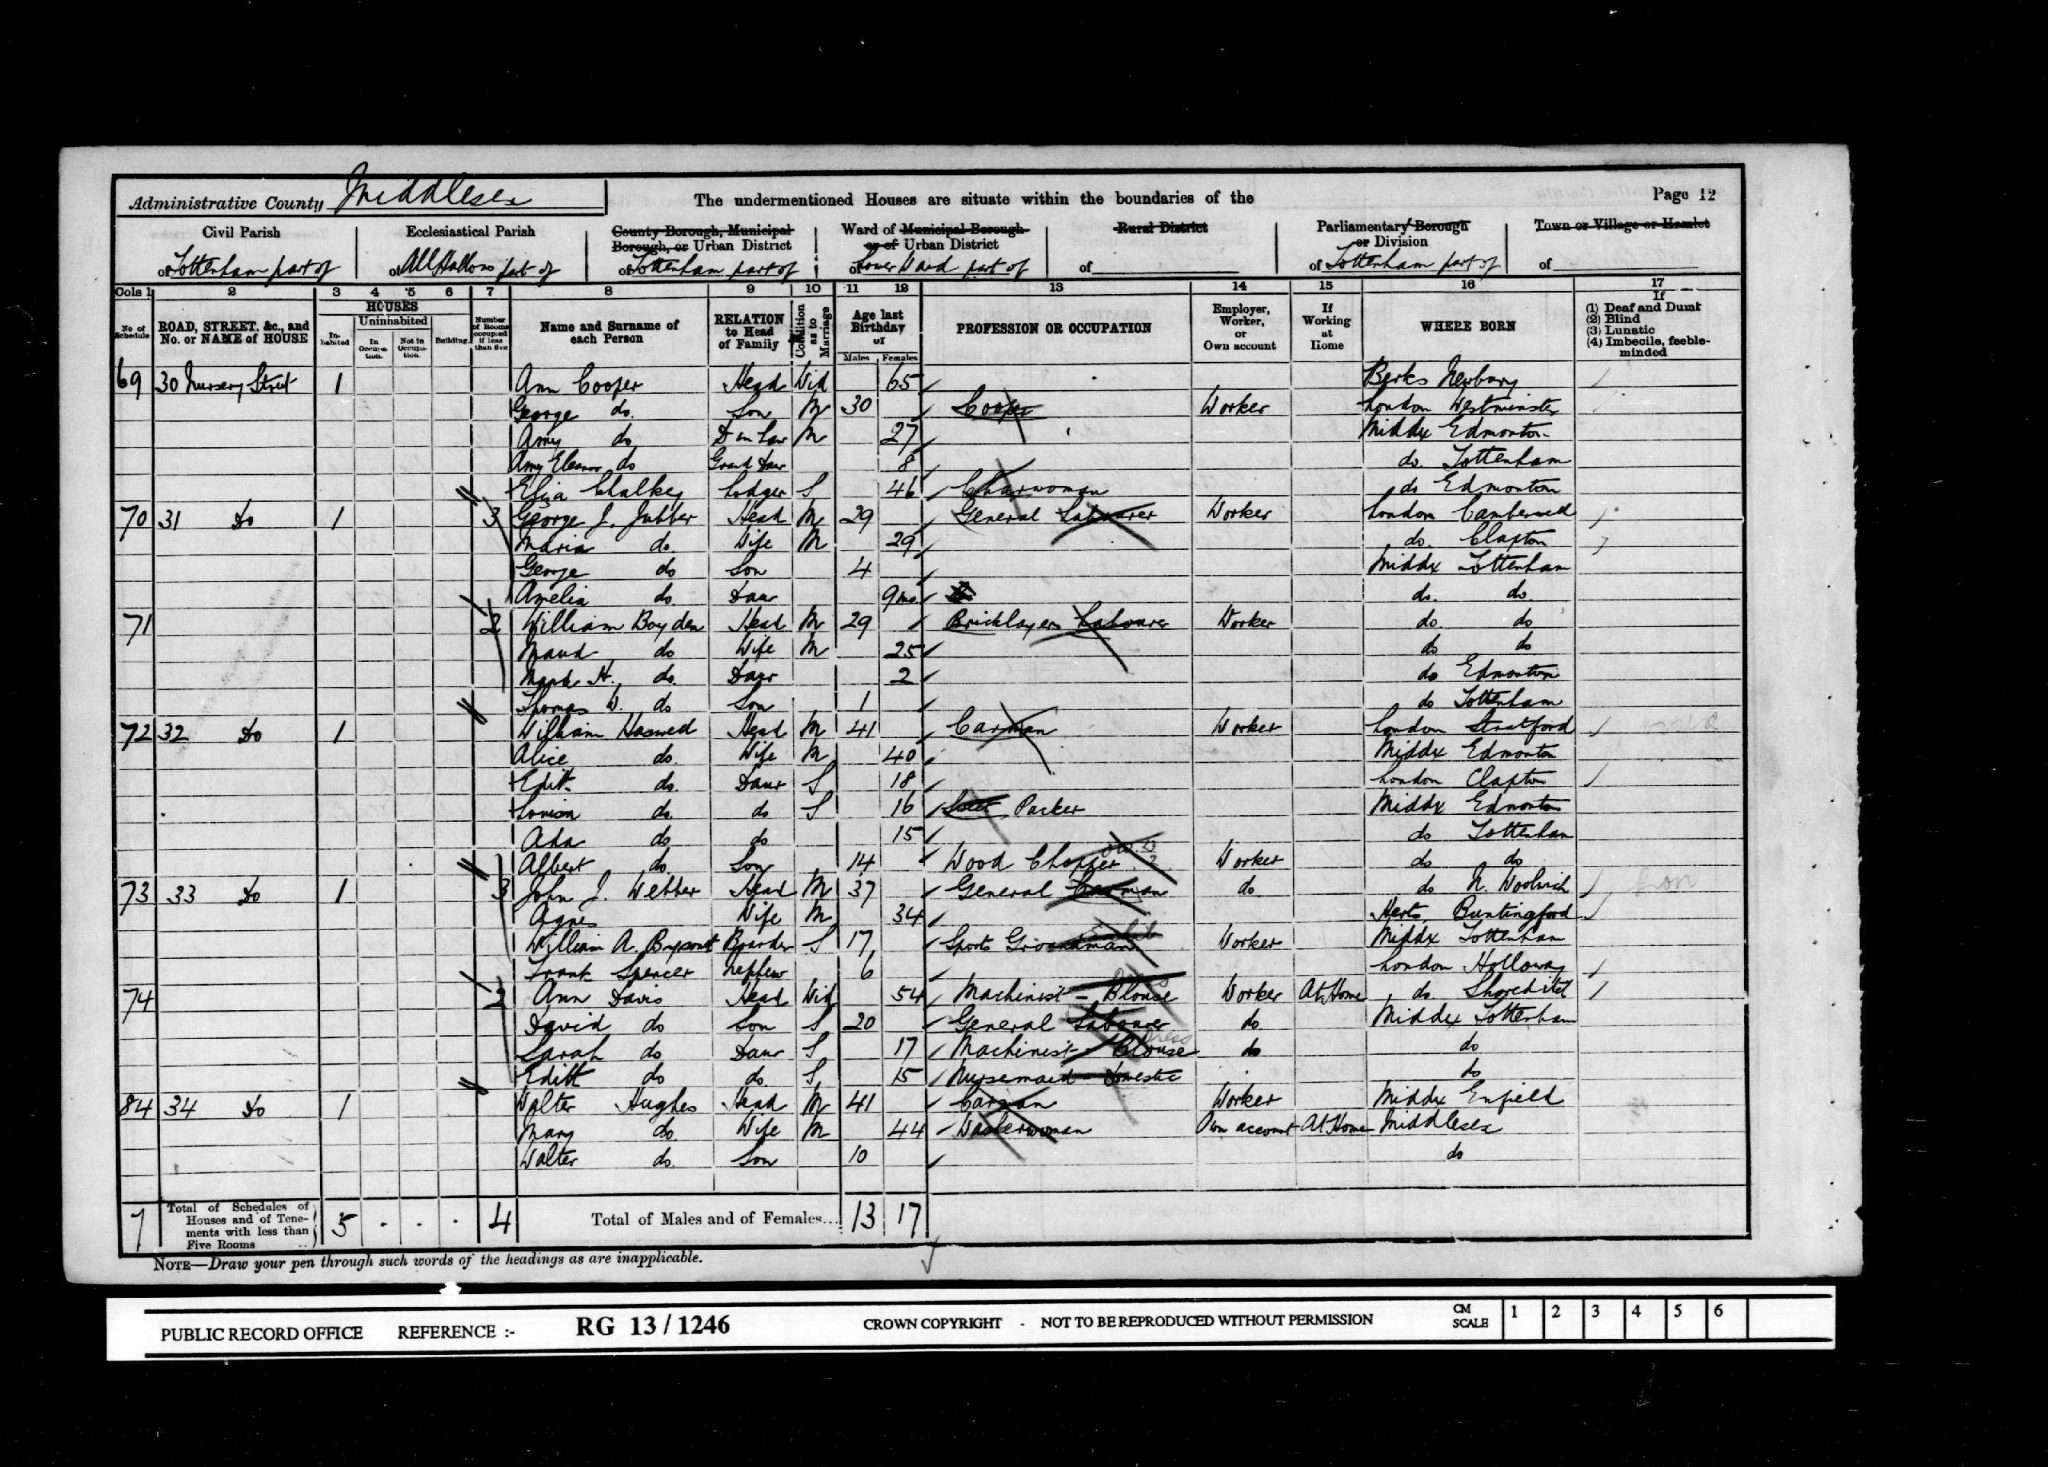 Administrative County Middlesex
The undermentioned Houses are situate within the boundaries of the
Page 12
Civil Parish of Tottenham part of
Ecclesiastical Parish of All Hallows part of
County Borough, Municipal Borough, or Urban District of Tottenham part of
Ward of Municipal Borough or of Urban District of Lower Ward part of
Rural District of
Parliamentary Borough or Division of Tottenham part of
Town or Village or Hamlet of
Cols 1 2 3 4 5 6 7 8 9 10 11 12 13 14 15 16 17
No. of Schedule
ROAD, STREET, &c., and No. or NAME of HOUSE
HOUSES
Inhabited
Uninhabited
In Occupation.
Not in Occupation.
Building
Number of Rooms occupied if less than five
Name and Surname of each Person
RELATION to Head of Family
Condition as to Marriage
Age last Birthday of
Males Females
PROFESSION OR OCCUPATION
Employer, Worker, or Own account
If Working at Home
WHERE BORN
If
(1) Deaf and Dumb
(2) Blind
(3) Lunatic
(4) Imbecile, feeble-minded
69 30 Nursery Street 1 Ann Cooper Head Wid 65 Berks Newbury
George do. Son M 30 Cooper Worker London Westminster
Amy do D in Law M 27 Middx Edmonton
Amy Eleanor do Grand Daur 8 do. Tottenham
Eliza Chalkey Lodger S 46 Charwoman do Edmonton
70 31 Do 1 3 George J. Jubber Head M 29 General Labourer Worker London Camberwell
Maria do. Wife M 29 do. Clapton
George do Son 4 Middx Tottenham
Amelia do. Daur 9mo do. do.
71 2 William Boyden Head M 29 Bricklayers Labourer Worker do. do
Maud do Wife M 25 do do
H. do. Daur 2 do Edmonton
Thomas W. do Son 1 do Tottenham
72 32 Do 1 William Haswed Head M 41 Carman Worker London Stratford
Alice do. Wife M 40 Middx Edmonton
Edith do. Daur S 18 London Clapton
Louisa do. do S 16 Packer Middx Edmonton
Ada do do 15 do Tottenham
Albert do. Son 14 Wood Chopper Worker do do
73 33 Do 1 3 John J. Webber Head M 37 General Carman do. do N. Woolwich
Agnes Wife M 34 Herts. Buntingford
William A. Boarder S 17 Sports Groundman Worker Middx Tottenham
Frank Spencer Nephew 6 London Holloway
74 2 Ann Davis Head Wid 54 Machinist - Blouse Worker At Home do. Shoreditch
David do Son S 20 General Labourer do. Middx Tottenham
Sarah do Daur S 17 Machinist - Blouse do do
Edith do do. S 15 Nursemaid - Domestic do
84 34 Do 1 Walter Hughes Head M 41 Carman Worker Middx Enfield
Mary do. Wife M 44 Washerwoman Own account At Home Middlesex
Walter do. Son 10 do
7 Total of Schedules of Houses and of Tenements with less than Five Rooms 5 . . . 4 Total of Males and of Females... 13 17
NOTE—Draw your pen through such words of the headings as are inapplicable.
PUBLIC RECORD OFFICE REFERENCE :- RG 13 / 1246 CROWN COPYRIGHT - NOT TO BE REPRODUCED WITHOUT PERMISSION CM SCALE 1 2 3 4 5 6